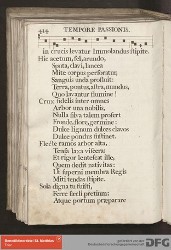 TEMPORE PASSIONIS.
in crucis levatur Immolandus stipite.
Hic acetum, fel, arundo,
Sputa, clavi, lancea
Mite corpus perforatur,
Sanguis unda profluit:
Terra, pontus, astra, mundus,
Quo lavantur flumine!
Crux fidelis inter omnes
Arbor una nobilis,
Nulla silva talem profert
Fronde, flore, germine:
Dulce lignum dulces clavos
Dulce pondus sustinet.
Flecte ramos arbor alta,
Tensa laxa viscera:
Et rigor lentescat ille,
Quem dedit nativitas:
Ut superni membra Regis
Miti tendas stipite.
Sola digna tu fuisti,
Ferre sæcli pretium:
Atque portum præparare